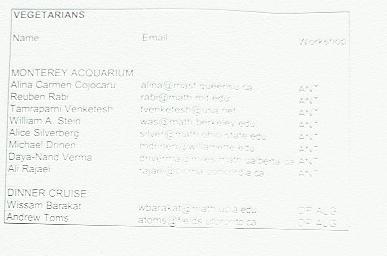 VEGETARIANS
Name Email Workshop
MONTEREY ACQUARIUM
Alina Carmen Cojocaru alina@mast.queensu.ca ANT
Reuben Rabi rabi@math.mit.edu ANT
Tamraparni Venketesh tvenketesh@usa.net ANT
William A. Stein was@math.berkeley.edu ANT
Alice Silverberg silver@math.ohio-state.edu ANT
Michael Drinen ANT
Daya-Nand Verma ANT
Ali Rajaei ANT
DINNER CRUISE
Wissam Barakat wbarakat@math.ucla.edu
Andrew Toms atoms@fields.utoronto.ca